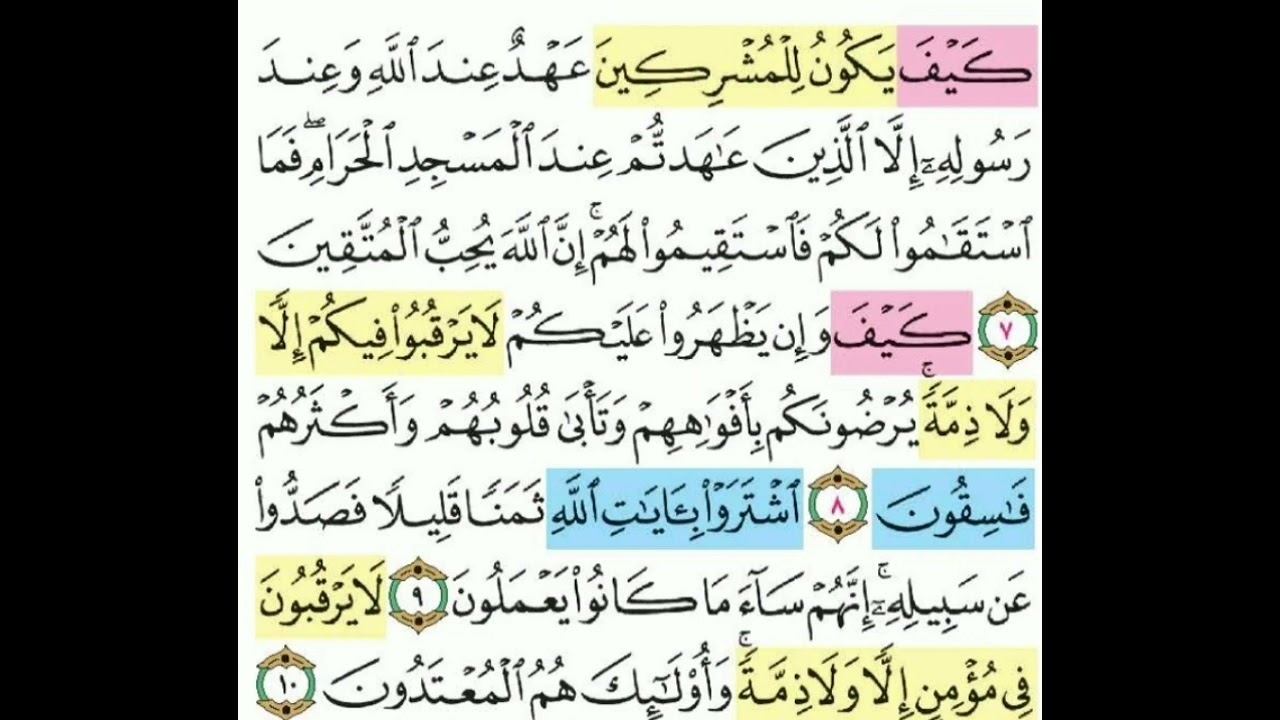 كَيۡفَ يَكُونُ لِلۡمُشۡرِكِينَ عَهۡدٌ عِندَ ٱللَّهِ وَعِندَ
رَسُولِهِۦٓ إِلَّا ٱلَّذِينَ عَٰهَدتُّمۡ عِندَ ٱلۡمَسۡجِدِ ٱلۡحَرَامِۖ فَمَا
ٱسۡتَقَٰمُواْ لَكُمۡ فَٱسۡتَقِيمُواْ لَهُمۡۚ إِنَّ ٱللَّهَ يُحِبُّ ٱلۡمُتَّقِينَ
٧ كَيۡفَ وَإِن يَظۡهَرُواْ عَلَيۡكُمۡ لَا يَرۡقُبُواْ فِيكُمۡ إِلّٗا
وَلَا ذِمَّةٗۚ يُرۡضُونَكُم بِأَفۡوَٰهِهِمۡ وَتَأۡبَىٰ قُلُوبُهُمۡ وَأَكۡثَرُهُمۡ
فَٰسِقُونَ ٨ ٱشۡتَرَوۡاْ بِـَٔايَٰتِ ٱللَّهِ ثَمَنٗا قَلِيلٗا فَصَدُّواْ
عَن سَبِيلِهِۦٓۚ إِنَّهُمۡ سَآءَ مَا كَانُواْ يَعۡمَلُونَ ٩ لَا يَرۡقُبُونَ
فِي مُؤۡمِنٍ إِلّٗا وَلَا ذِمَّةٗۚ وَأُوْلَٰٓئِكَ هُمُ ٱلۡمُعۡتَدُونَ ١٠